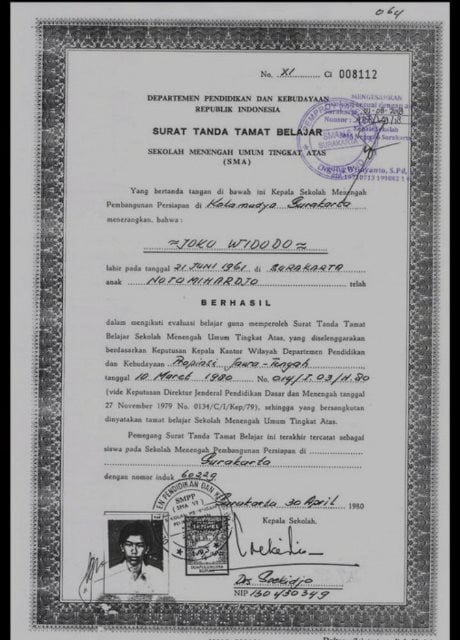 064
No. XI Ci 008112
DEPARTEMEN PENDIDIKAN DAN KEBUDAYAAN
REPUBLIK INDONESIA
SURAT TANDA TAMAT BELAJAR
SEKOLAH MENENGAH UMUM TINGKAT ATAS
(SMA)
MENGESAHKAN
Kepala Sekolah
SURAKARTA
Yang bertanda tangan di bawah ini Kepala Sekolah Menengah
Pembangunan Persiapan di Kotamadya Surakarta
menerangkan, bahwa :
≈JOKO WIDODO≈
lahir pada tanggal 21 JUNI 1961 di SURAKARTA
anak NOTOMIHARDJO telah
BERHASIL
dalam mengikuti evaluasi belajar guna memperoleh Surat Tanda Tamat
Belajar Sekolah Menengah Umum Tingkat Atas, yang diselenggarakan
berdasarkan Keputusan Kepala Kantor Wilayah Departemen Pendidikan
dan Kebudayaan Propinsi Jawa-Tengah
tanggal 10 Maret 1980 No. 019/I.03/H.80
(vide Keputusan Direktur Jenderal Pendidikan Dasar dan Menengah tanggal
27 November 1979 No. 0134/C/I/Kep/79), sehingga yang bersangkutan
dinyatakan tamat belajar Sekolah Menengah Umum Tingkat Atas.
Pemegang Surat Tanda Tamat Belajar ini terakhir tercatat sebagai
siswa pada Sekolah Menengah Pembangunan Persiapan di
Surakarta
dengan nomor induk 60229
Surakarta 30 April 1980
Kepala Sekolah,
SMPP
Drs. Soekidjo
NIP 130430349